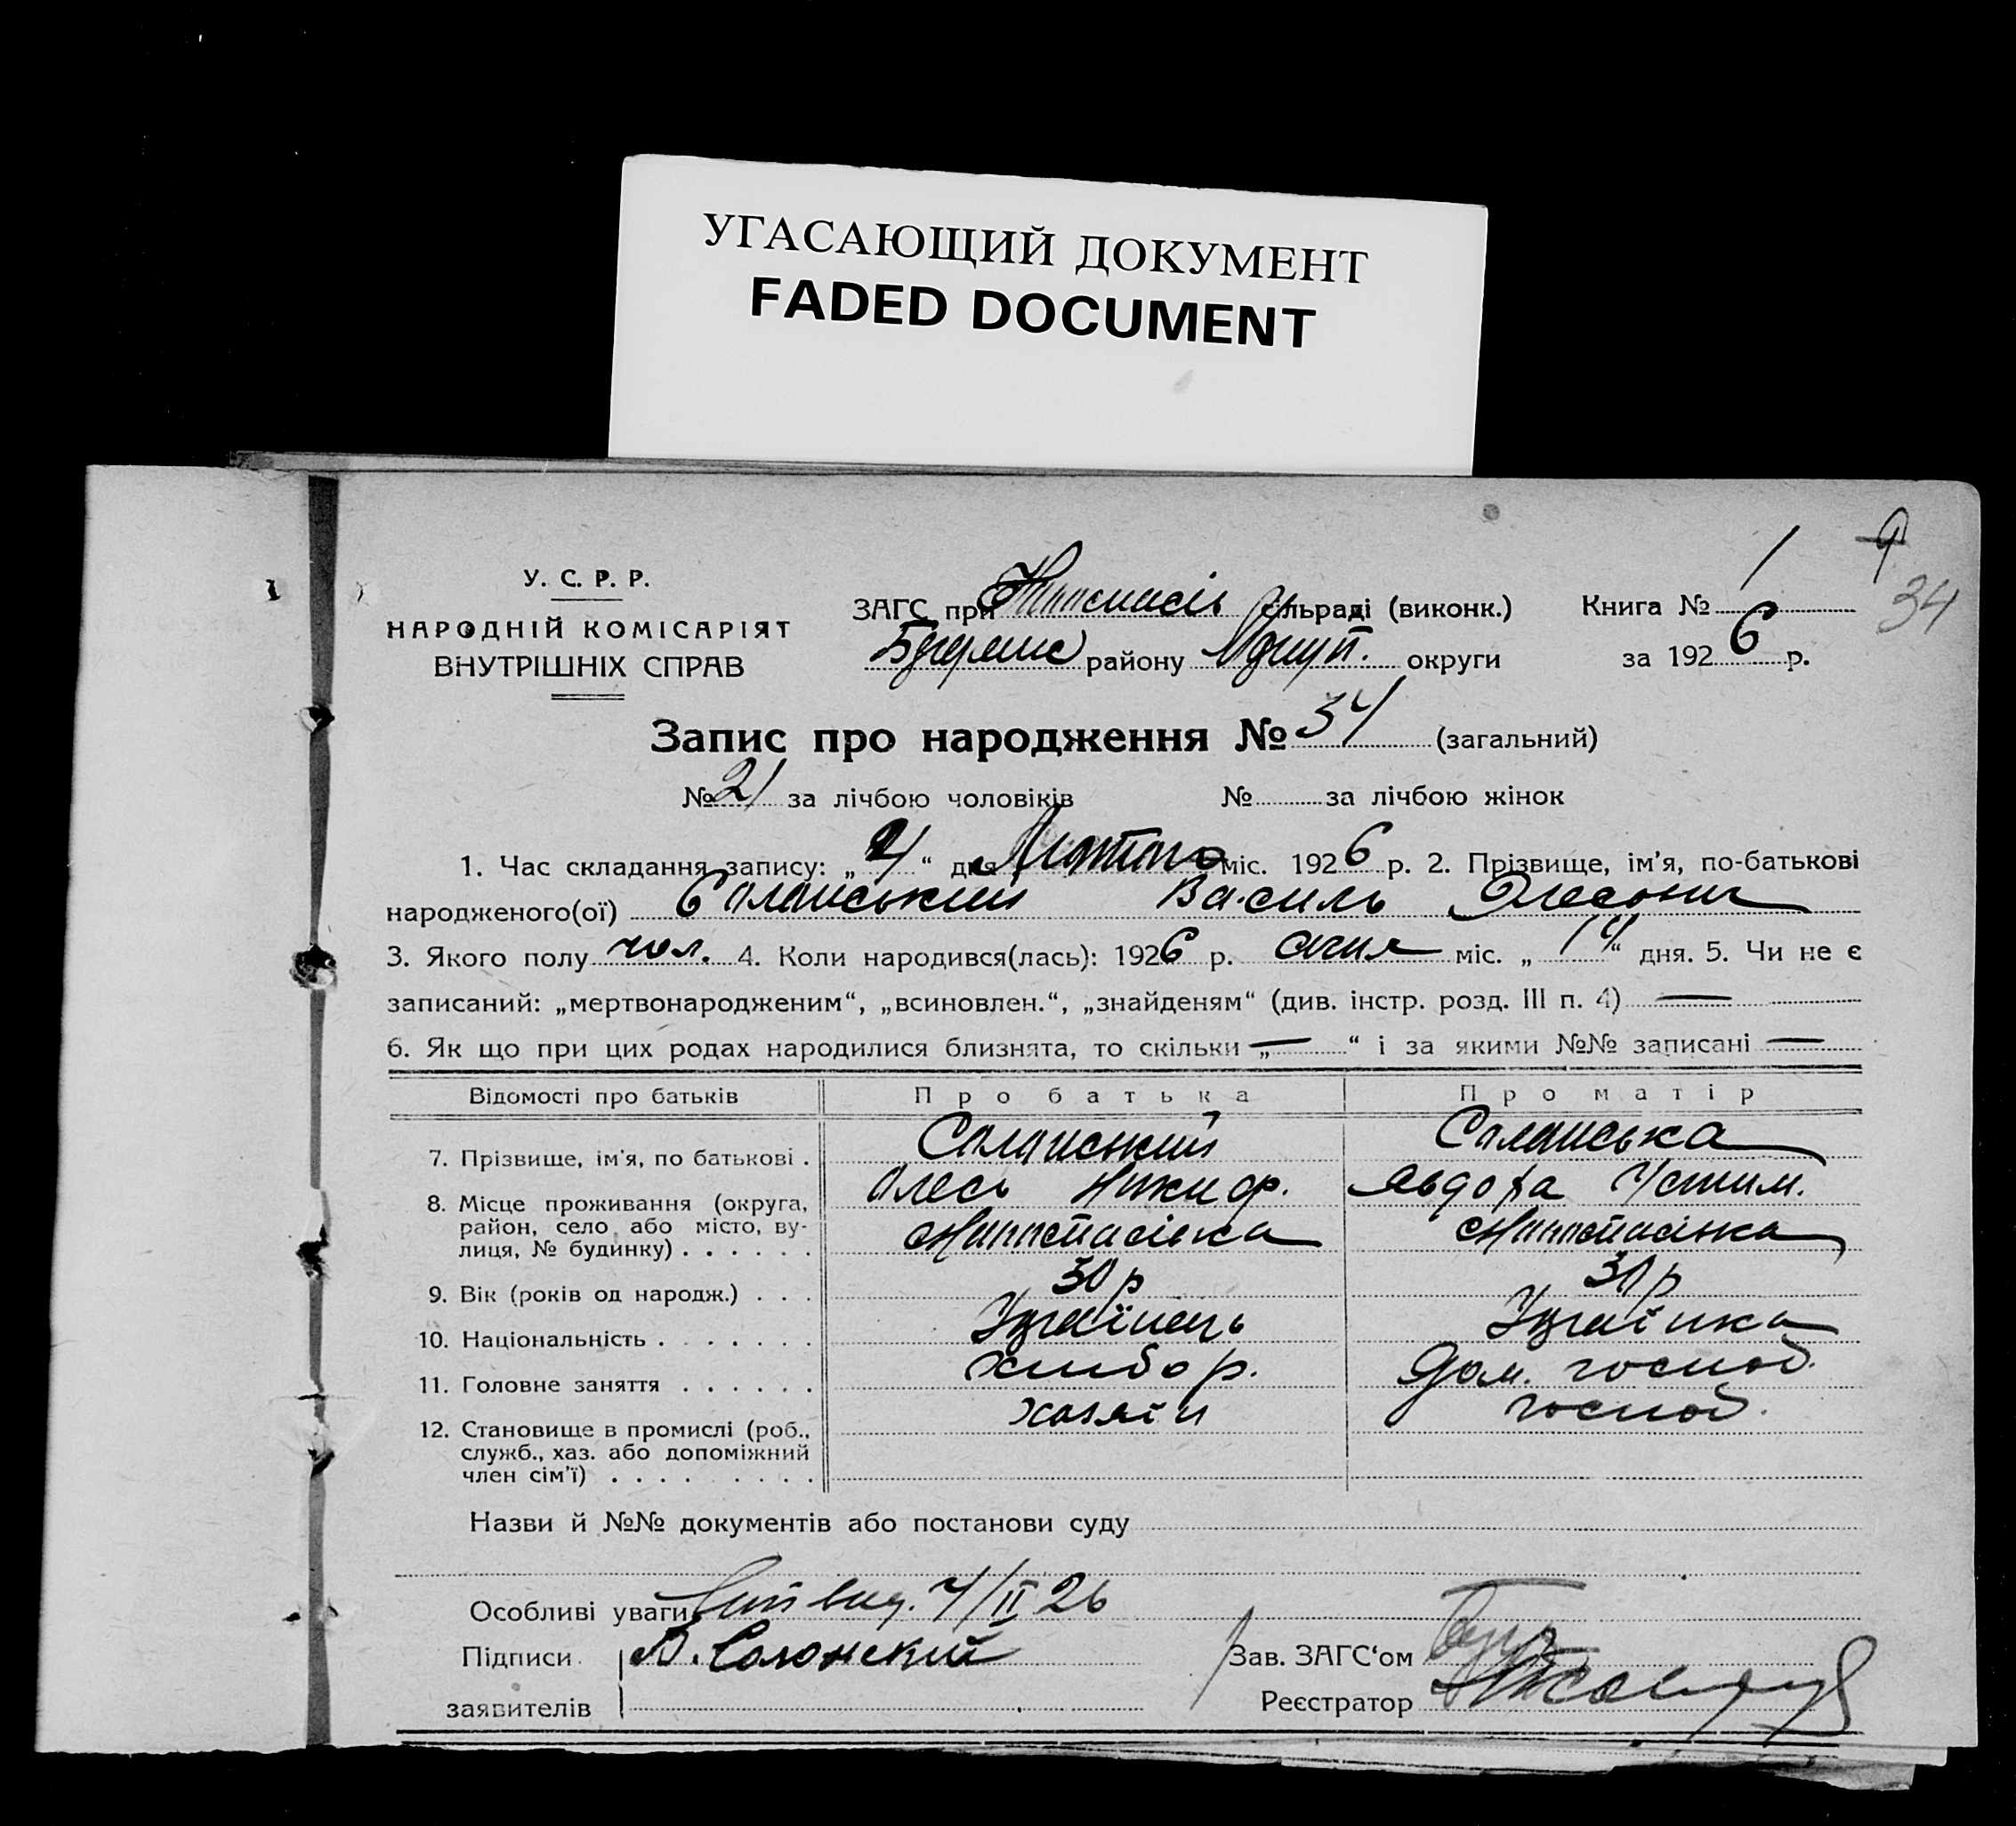 УГАСАЮЩИЙ ДОКУМЕНТ
FADED DOCUMENT
9
34
У. С. Р. Р.
НАРОДНІЙ КОМІСАРІЯТ
ВНУТРІШНІХ СПРАВ
ЗАГС при сільраді (виконк.) Книга № 1
району округи за 1926 р.
Запис про народження № 34 (загальний)
№ 21 за лічбою чоловіків № за лічбою жінок
1. Час складання запису: „4“ дня Лютого міс. 1926 р. 2. Прізвище, ім'я, по-батькові
народженого(ої) Солонський Василь Олесович
3. Якого полу чол. 4. Коли народився(лась): 1926 р. січня міс. „14“ дня. 5. Чи не є
записаний: „мертвонародженим“, „всиновлен.“, „знайденям“ (див. інстр. розд. III п. 4) —
6. Як що при цих родах народилися близнята, то скільки „—“ і за якими №№ записані —
Відомості про батьків Про батька Про матір
7. Прізвище, ім'я, по батькові . Солонський Солонська
Олесь Никифор. Явдоха Устим.
8. Місце проживання (округа, район, село або місто, вулиця, № будинку) . . . . . .
9. Вік (років од народж.) . . . 30 р 30 р
10. Національність . . . . . . . Українець Українка
11. Головне заняття . . . . . . хлібор. Дом. господ.
12. Становище в промислі (роб., служб., хаз. або допоміжний член сім'ї) . . . . . . . . хазяїн господ.
Назви й №№ документів або постанови суду
Особливі уваги 4/II 26
Підписи В. Солонский Зав. ЗАГС'ом
заявителів Реєстратор